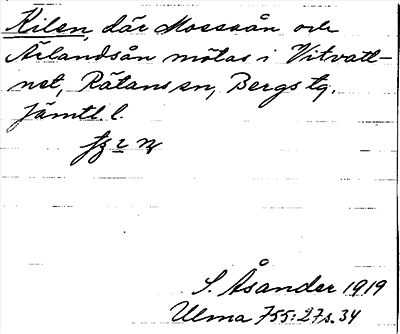 Kilen, där Mosseån och
Ärlandsån mötas i Vitvatt-
net, Rätans sn, Bergs tg.
Jämtl. l.
S. Åsander 1919
Ulma 755:27 s. 34